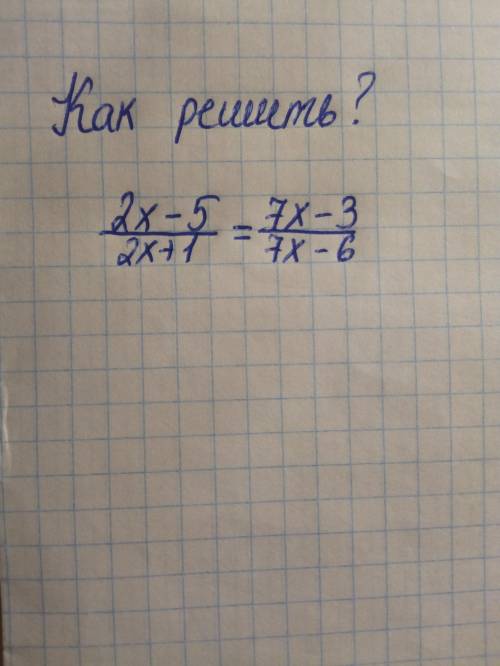 Как решить?
2x-5/2x+1 = 7x-3/7x-6